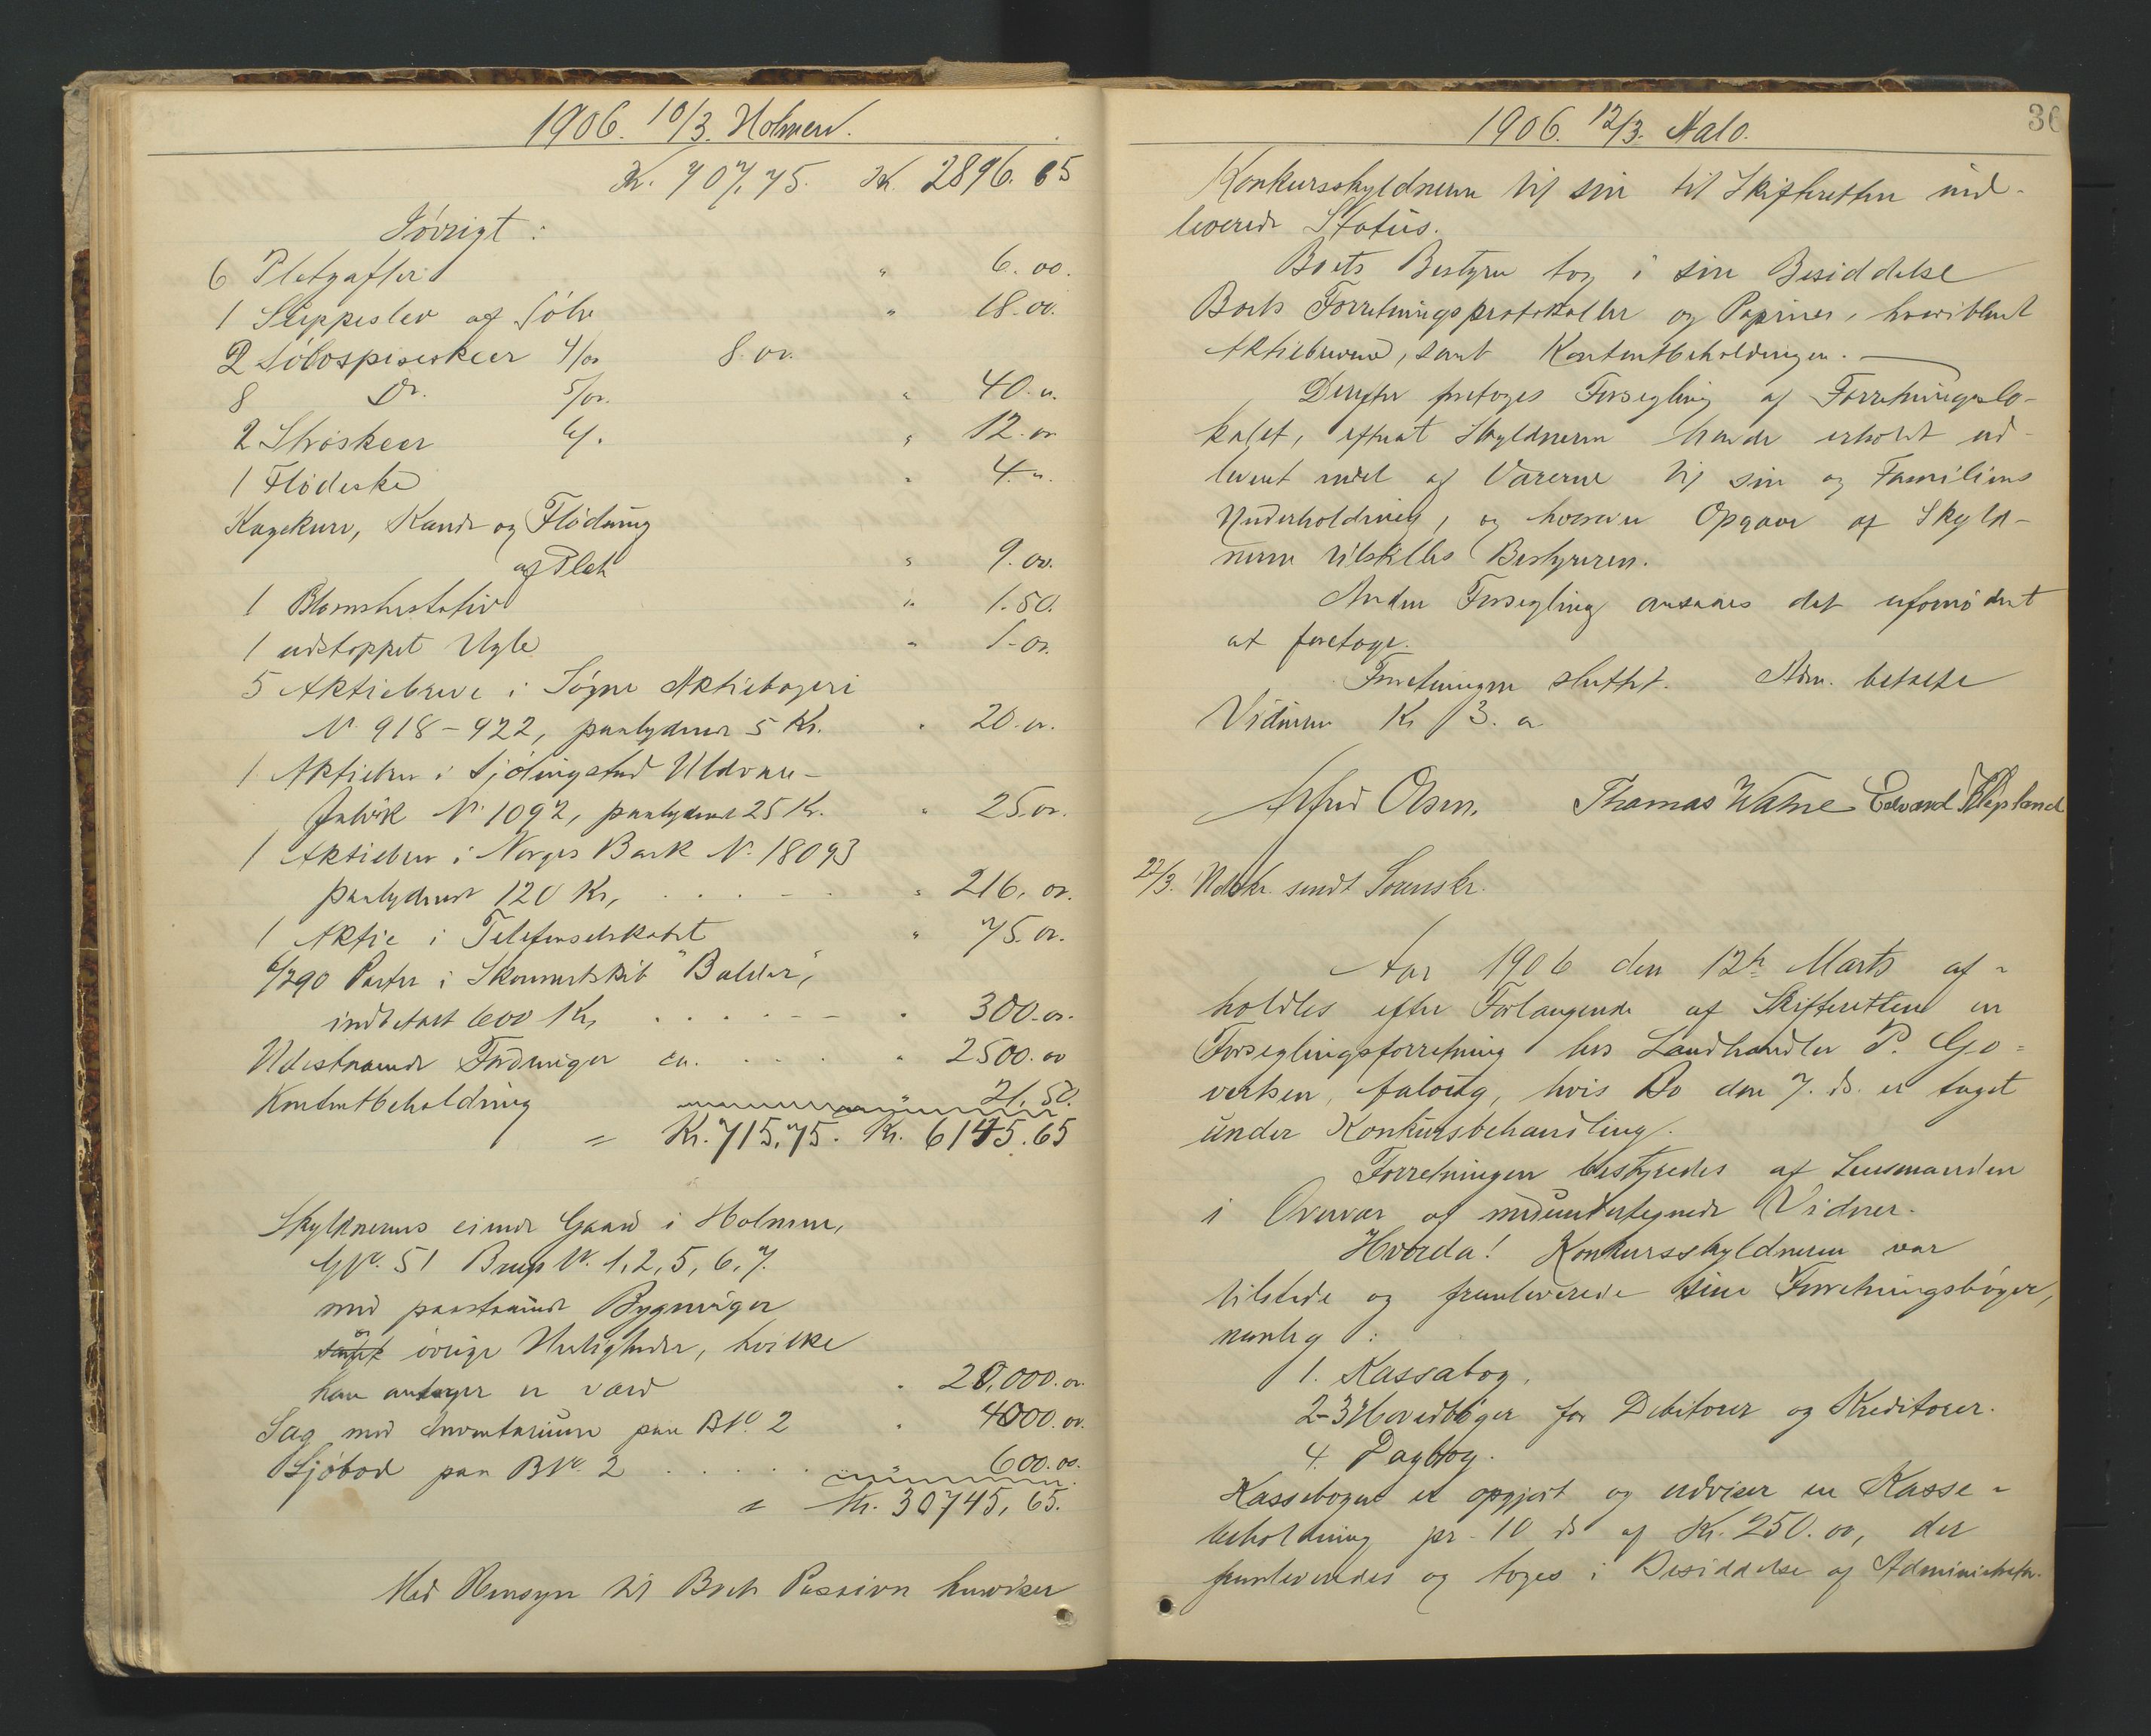 1906. 10/3. Holmen.
Kr. 707,75. Kr. 2896.65
Iövrigt:
6 Pletgafler " 6.00.
1 Suppeslev af Sölv " 18.00.
2 Sölvspiseskeer 4/00 8.00.
8 Do. 5/00. " 40.00
2 Ströskeer 6/. " 12.00
1 Flödeske " 4.00
Kagekurv, Kande og Flödmug
af Plet " 9.00.
1 Blomsterstativ " 1.50.
1 udstoppet Ugle " 1.00.
5 Aktiebreve i Sögne Aktiebageri
No 918-922, paalydende 5 Kr. " 20.00.
1 Aktiebrev i Sjölingstad Uldvare-
fabrik No 1092, paalydende 25 Kr. " 25.00.
1 Aktiebrev i Norges Bank No. 18093
paalydende 120 Kr, " 216.00.
1 Aktie i Telefonselskabet " 75.00.
6/290 Parter i Skonnertskib "Balder",
indbetalt 600 Kr, " 300.00.
Udestaaende Fordringer ca. " 2500.00
Kontantbeholdning " 21.50.
= Kr. 715,75. Kr. 6145.65
Skyldnerens eiende Gaard i Holmen,
GNo. 51 Brugs No. 1, 2, 5, 6, 7.
med paastaaende Bygninger
samt övrige Herligheder, hvilke
han antager er værd " 20,000.00.
Sag med Inventarium paa BNo. 2 " 4000.00.
Sjöbod paa BNo. 2 " 600.00.
= Kr. 30745,65.
Med Hensyn til Boets Passiva henviser
1906. 12/3. Valo.
30
Konkursskyldneren til sin til Skifteretten ind-
leverede Status.
Boets Bestyrer tog i sin Besiddelse
Boets Forretningsprotokoller og Papirer, hvoriblandt
Aktiebrevene, samt Kontantbeholdningen.
Derefter foretoges Forsegling af Forretningslo-
kalet, efterat Skyldneren havde erholdt ud-
leveret endel af Varerne til sin og Familiens
Underholdning, og hvorover Opgave af Skyld-
neren tilstilles Bestyreren.
Anden Forsegling ansaaes det ufornödent
at foretage.
Forretningen sluttet. Adm. betalte
Vidnerne Kr 3.00
Alfred Olsen. Thomas Watne Edvard Klepland
22/3. Udskr. sendt Sorenskr.
Aar 1906 den 12te Marts af-
holdtes efter Forlangende af Skifteretten en
Forseglingsforretning hos Landhandler P. Go-
vertsen, Aalovig, hvis Bo den 7. ds. er taget
under Konkursbehandling.
Forretningen bestyredes af Lensmanden
i Overvær af medundertegnede Vidner.
Hvorda! Konkursskyldneren var
tilstede og fremleverede sine Forretningsböger,
nemlig:
1. Kassabog.
2-3 Hovedböger for Debitorer og Kreditorer.
4. Dagbog.
Kassebogen er opgjort og udviser en Kasse-
beholdning pr. 10 ds af Kr. 250.00, der
fremleveredes og toges i Besiddelse af Administrator.